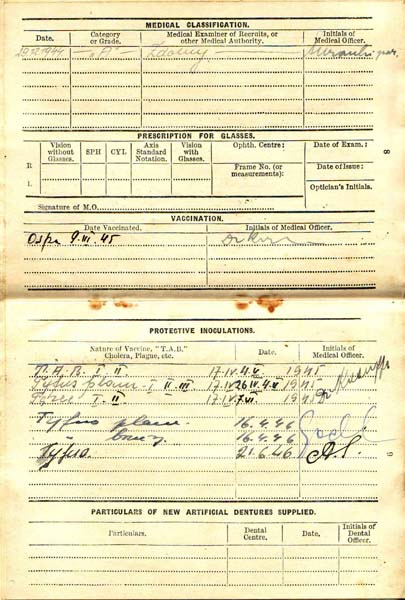 MEDICAL CLASSIFICATION.
Date. Category or Grade. Medical Examiner of Recruits, or other Medical Authority. Initials of Medical Officer.
1944 "A" Zdolny
PRESCRIPTION FOR GLASSES.
Vision without Glasses. SPH CYL Axis Standard Notation. Vision with Glasses. Ophth. Centre: Date of Exam.:
R Frame No. (or measurements): Date of Issue:
L Optician's Initials.
Signature of M.O.
8
VACCINATION.
Date Vaccinated. Initials of Medical Officer.
Ospa 9.VI.45 Dr
PROTECTIVE INOCULATIONS.
Nature of Vaccine, "T.A.B." Cholera, Plague, etc. Date. Initials of Medical Officer.
T.A.B. I II 17.IV. 4.V 1945
Tyfus plam. I II III 17.IV 26.IV. 4.V 1945 Dr
I. II 17.IV. 7.VI. 1945
Tyfus plam. 16.4.46
16.4.46
Tyfus. 21.6.46
9
PARTICULARS OF NEW ARTIFICIAL DENTURES SUPPLIED.
Particulars. Dental Centre. Date. Initials of Dental Officer.